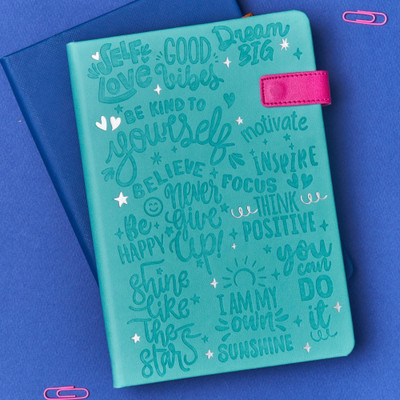 SELF
LOVE
GOOD
Vibes
Dream
BIG
BE KIND TO
yourself
motivate
INSPIRE
BELIEVE
FOCUS
Never
give
UP!
THINK
POSITIVE
Be
HAPPY
you
can
DO
it
Shine
LIKE
THE
STARS
I AM MY
OWN
SUNSHINE